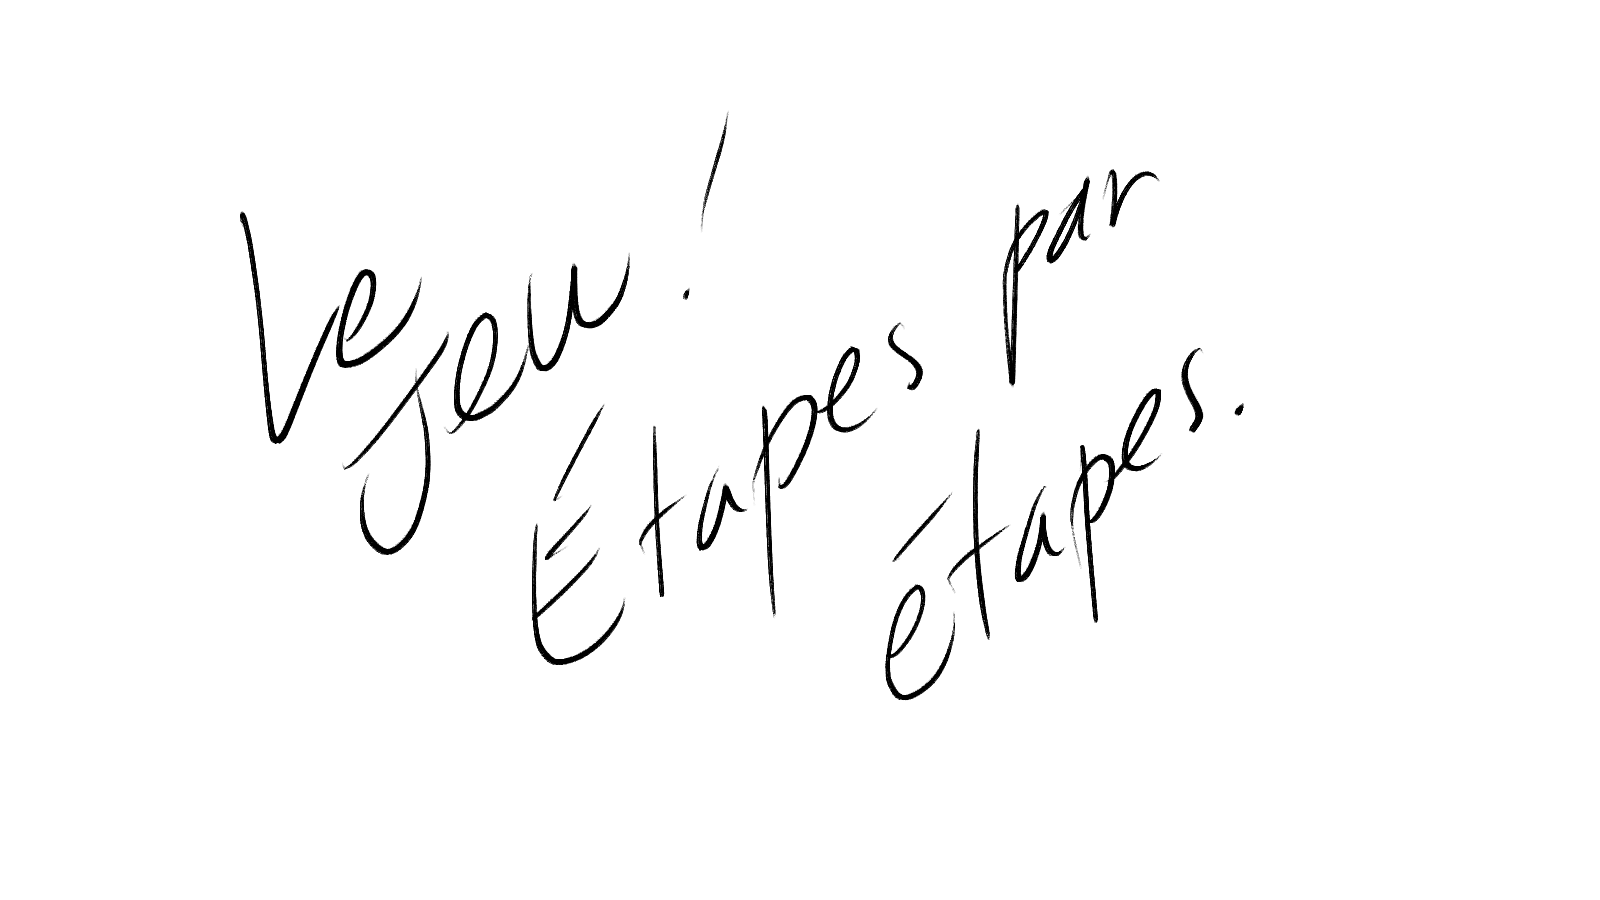 Le Jeu !
Étapes par
étapes.